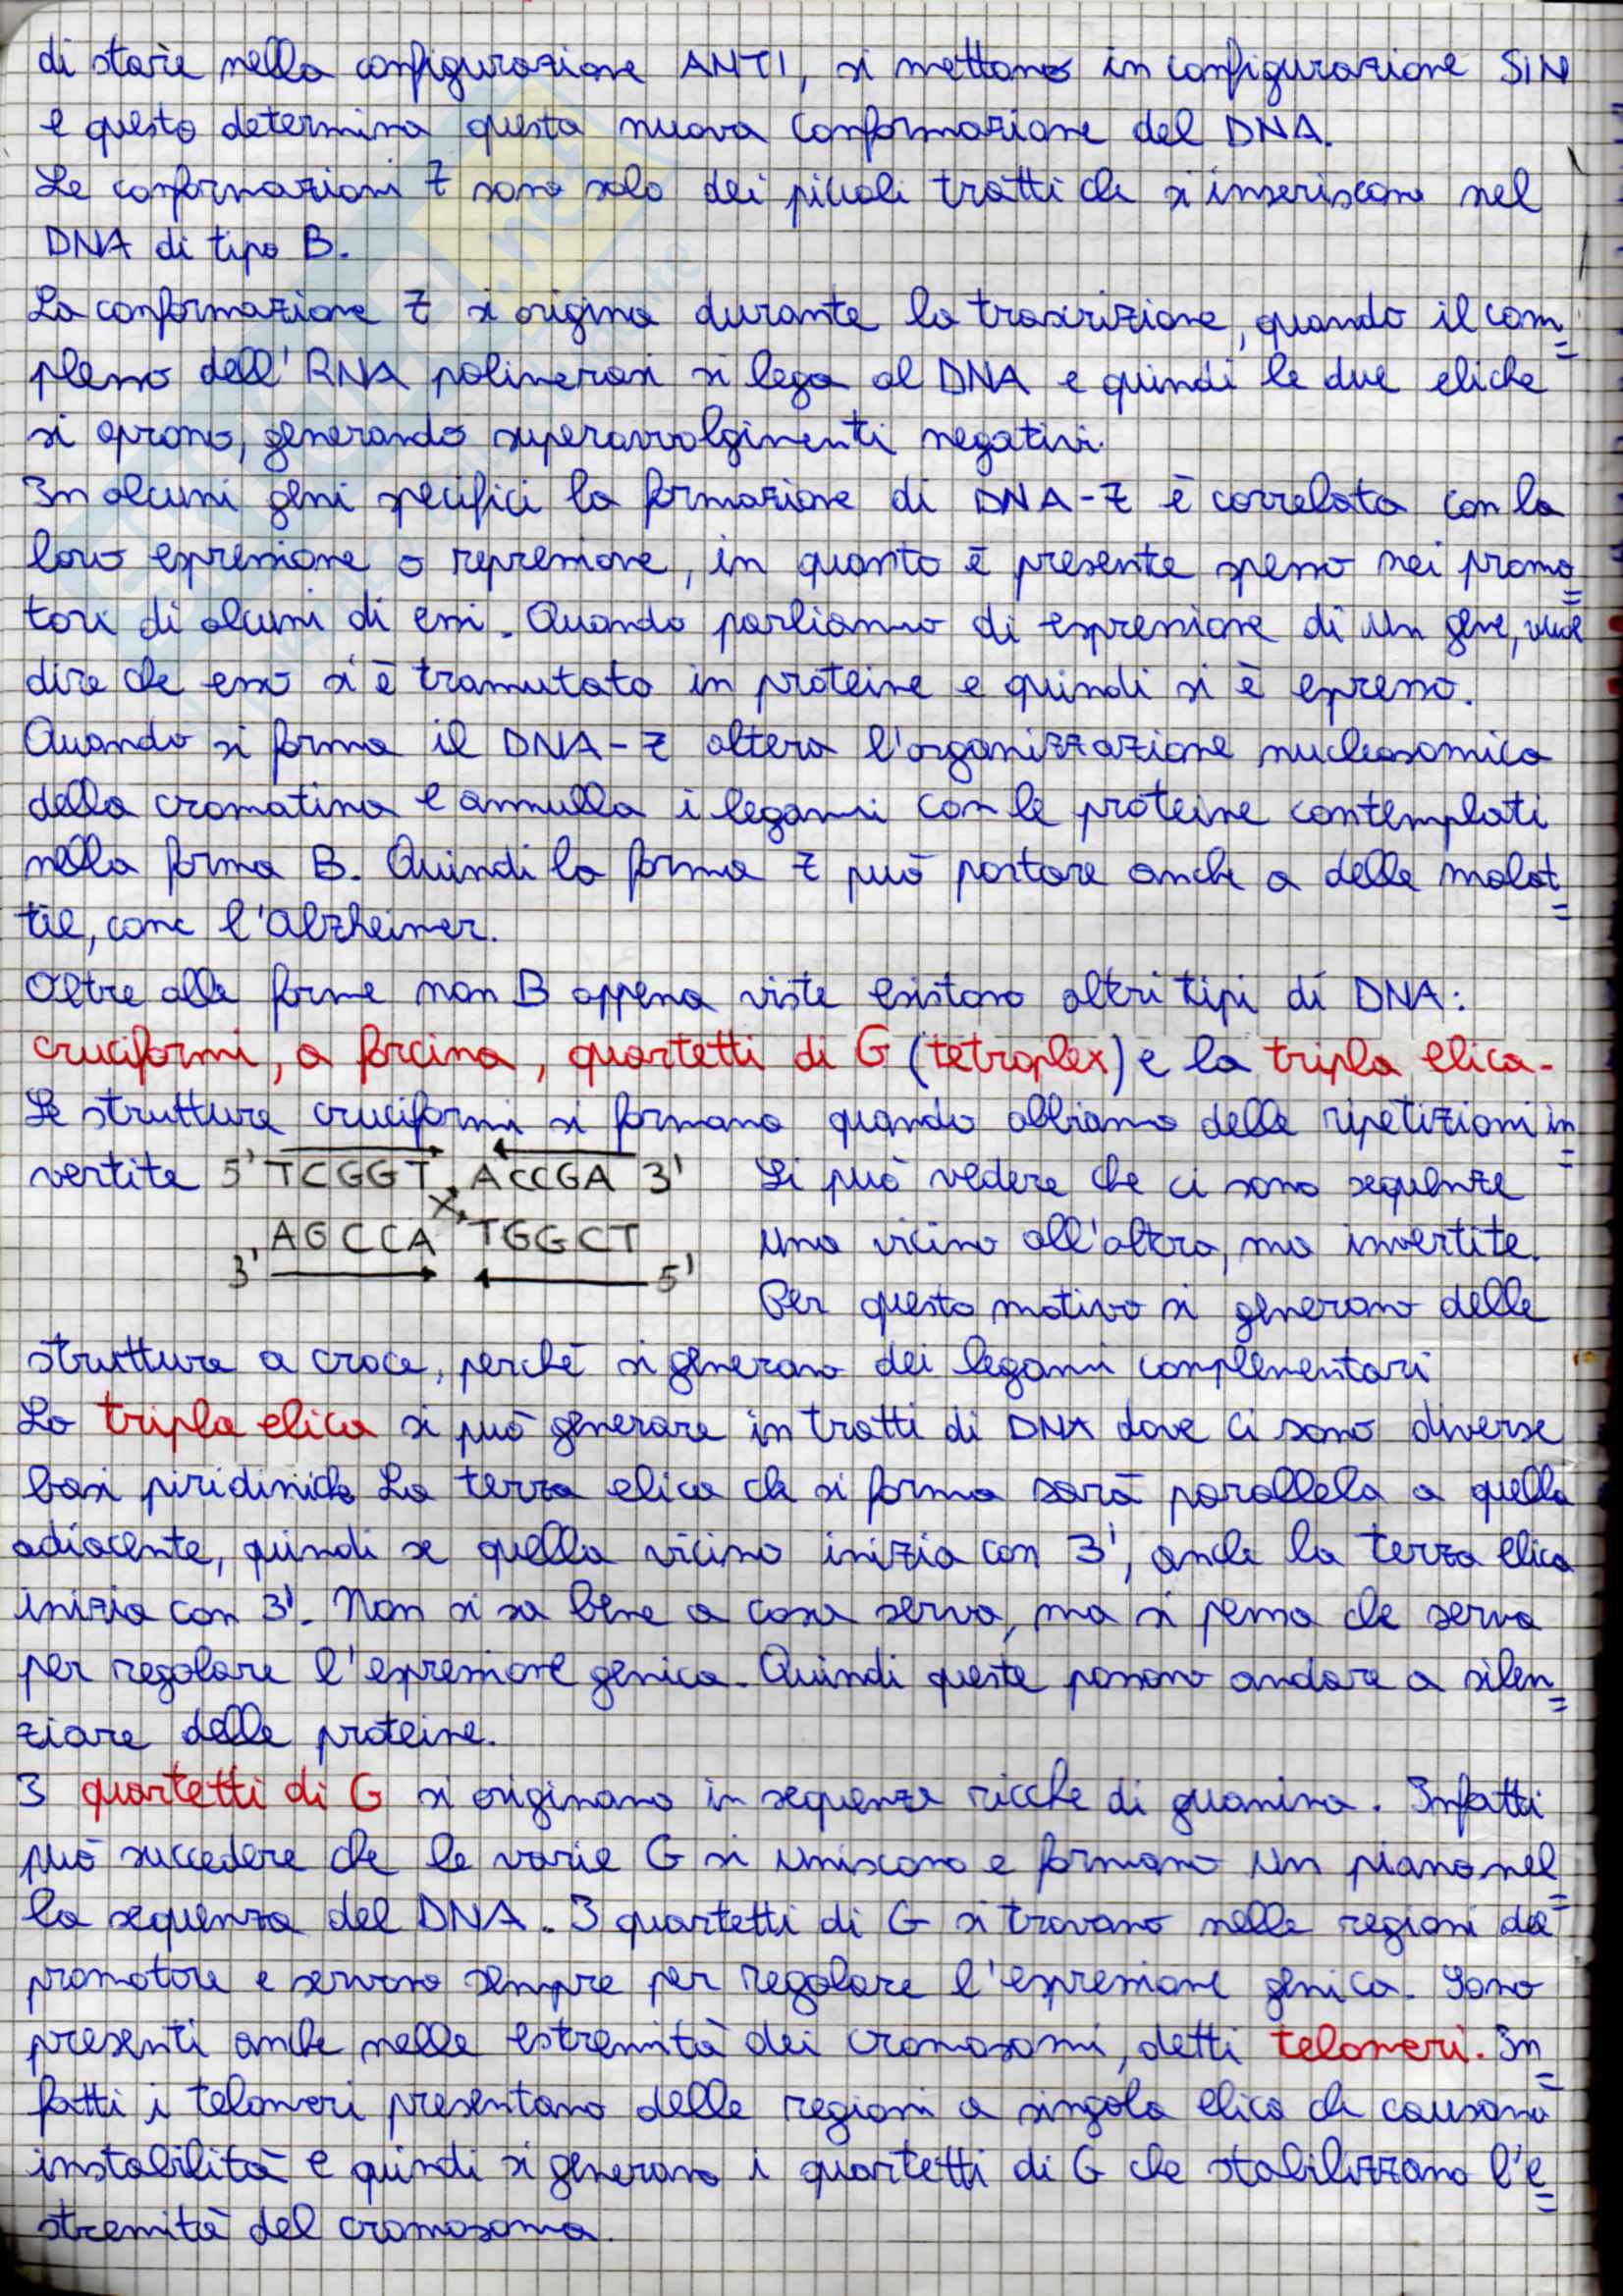 di stare nella configurazione ANTI, si mettono in configurazione SIN
e questo determina questa nuova conformazione del DNA.
Le conformazioni Z sono solo dei piccoli tratti che si inseriscono nel
DNA di tipo B.
La conformazione Z si origina durante la trascrizione, quando il com=
plesso dell'RNA polimerasi si lega al DNA e quindi le due eliche
si aprono, generando superavvolgimenti negativi.
In alcuni geni specifici la formazione di DNA-Z è correlata con la
loro espressione o repressione, in quanto è presente spesso nei promo=
tori di alcuni di essi. Quando parliamo di espressione di un gene, vuol
dire che esso si è tramutato in proteine e quindi si è espresso.
Quando si forma il DNA-Z altera l'organizzazione nucleosomica
della cromatina e annulla i legami con le proteine contemplati
nella forma B. Quindi la forma Z può portare anche a delle malat=
tie, come l'Alzheimer.
Oltre alle forme non B appena viste esistono altri tipi di DNA:
cruciformi, a forcina, quartetti di G (tetraplex) e la tripla elica.
Le strutture cruciformi si formano quando abbiamo delle ripetizioni in=
vertite 5' TCGGT . ACCGA 3' Si può vedere che ci sono sequenze
X
3' AGCCA TGGCT 5' una vicino all'altra, ma invertite.
Per questo motivo si generano delle
strutture a croce, perché si generano dei legami complementari
La tripla elica si può generare in tratti di DNA dove ci sono diverse
basi piridiniche La terza elica che si forma sarà parallela a quella
adiacente, quindi se quella vicino inizia con 3', anche la terza elica
inizia con 3'. Non si sa bene a cosa serva, ma si pensa che serva
per regolare l'espressione genica. Quindi queste possono andare a silen=
ziare delle proteine.
I quartetti di G si originano in sequenze ricche di guanina. Infatti
può succedere che le varie G si uniscono e formano un piano nel=
la sequenza del DNA. I quartetti di G si trovano nelle regioni del
promotore e servono sempre per regolare l'espressione genica. Sono
presenti anche nelle estremità dei cromosomi, detti telomeri. In=
fatti i telomeri presentano delle regioni a singola elica che causano
instabilità e quindi si generano i quartetti di G che stabilizzano l'e=
stremità del cromosoma.